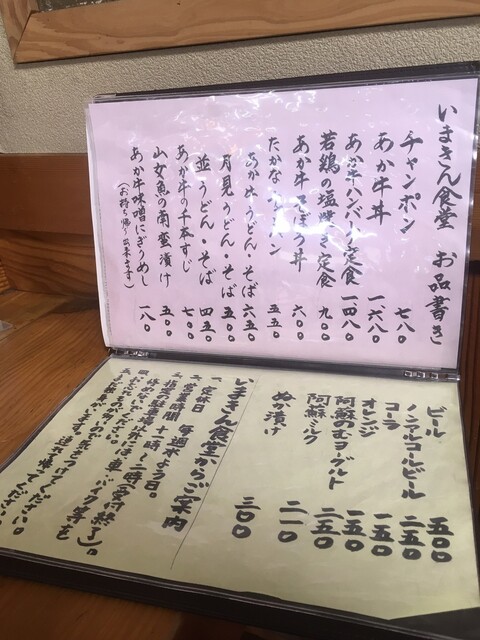 いまきん食堂 お品書き
チャンポン 七八〇
あか牛丼 一、六八〇
あか牛ハンバーグ定食 一、四八〇
若鶏の塩焼き定食 九〇〇
あか牛そぼろ丼 六〇〇
たかな 五五〇
うどん・そば 六五〇
月見うどん・そば 五〇〇
並うどん・そば 四五〇
あか牛の千本すじ 七〇〇
山女魚の南蛮漬け 五〇〇
あか牛味噌にぎりめし 一八〇
(お持ち帰り出来ます)
ビール 五〇〇
ノンアルコールビール 二五〇
コーラ 一五〇
オレンジ 一五〇
阿蘇のむヨーグルト 二五〇
阿蘇ミルク 二一〇
ぬか漬け 三〇〇
いまきん食堂からご案内
一、定休日 毎週水よう日。
営業時間 十一時〜三時(受付終了)。
指定の駐車場以外には車・バイク等を